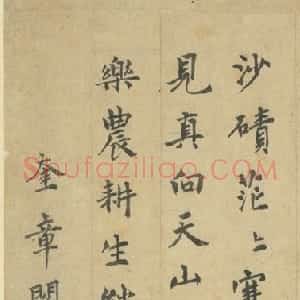 沙磧茫〻寒
見真向天山
樂農耕生
奎章閣
Shufaziliao.COM